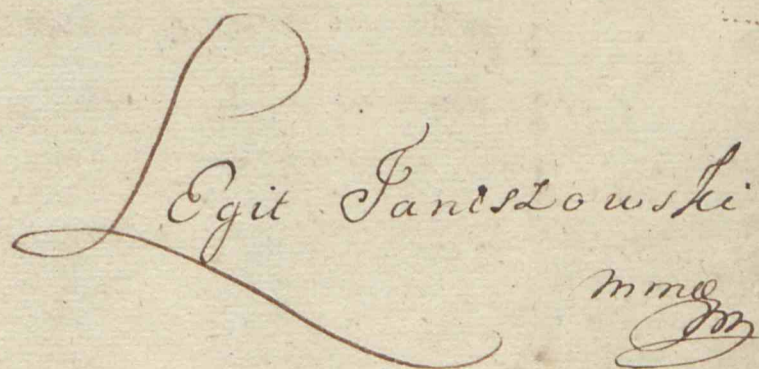 LEgit Janiszowski
mmq